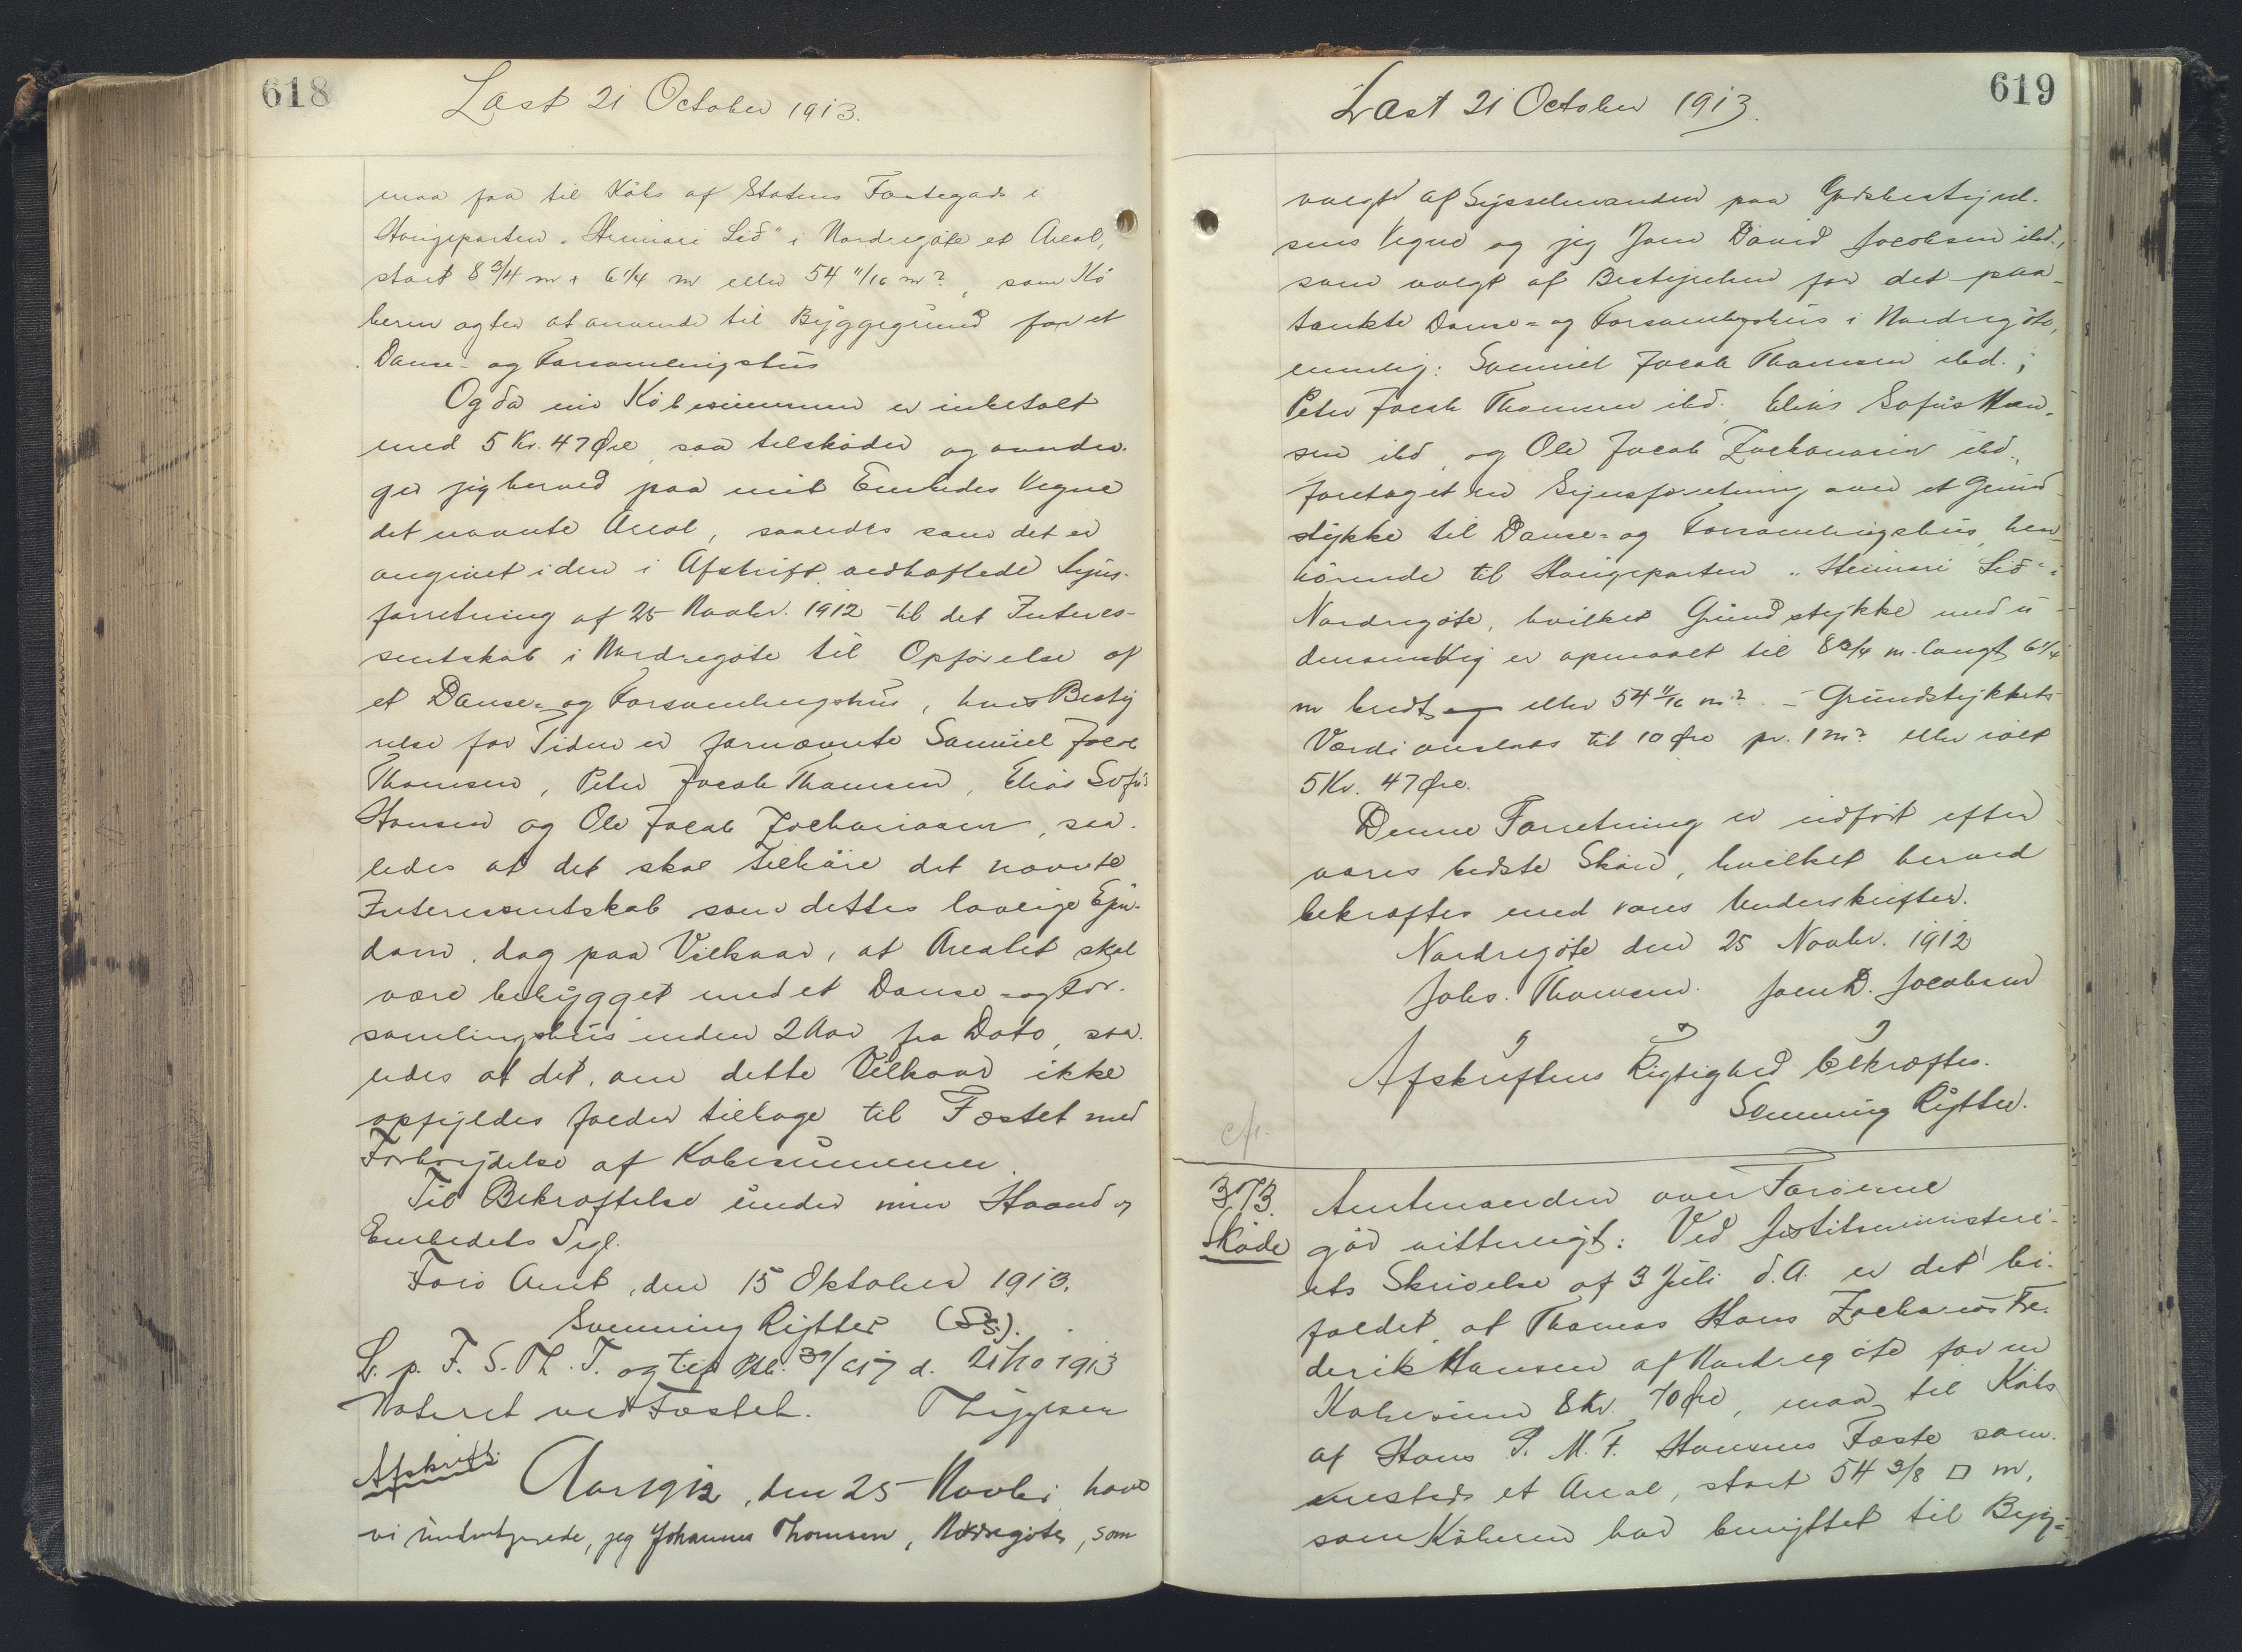 618
Læst 21 October 1913.
maa faa til Købs af Statens Fæstegods i
Haugeparten "Heimari Lið" i Nordregøte et Areal,
stort 8 3/4 m × 6 1/4 m eller 54 11/16 m², som Kö
beren agter at anvende til Byggegrund for et
Danse- og Forsamlingshus
Og da nu Köbesummen er indbetalt
med 5 Kr. 47 Øre, saa tilsköder og overdra-
ger jeg herved paa mit Embedes Vegne
det nævnte Areal, saaledes som det er
angivet i den i Afskrift vedhæftede Syns-
forretning af 25 Novbr. 1912 til det Interes-
sentskab i Nordregøte til Opførelse af
et Danse- og Forsamlingshus, hvis Besty
relse for Tiden er fornævnte Samuel Jacob
Thomsen, Peter Jacob Thomsen, Elias Sofus
Hansen og Ole Jacob Zachariasen, saa-
ledes at det skal tilhöre det nævnte
Interessentskab som dettes lovlige Ejen-
dom, dog paa Vilkaar, at Arealet skal
være bebygget med et Danse- og For-
samlingshus inden 2 Aar fra Dato, saa-
ledes at det, om dette Vilkaar ikke
opfyldes falder tilbage til Fæstet med
Forbrydelse af Købesummen.
Til Bekræftelse under min Haand og
Embedets Segl.
Færø Amt, den 15 Oktober 1913.
Svenning Rytter (SS).
L. p. F. S. Th. T. og til Ptk. d. 21/10 1913
Noteret ved Fæstet.
Afskrift.
Aar 1912, den 25 Novbr. have
vi undertegnede, jeg Johannes Thomsen, Nordregøte, som
619
Læst 21 October 1913.
valgt af Sysselmanden paa Godsbestyrel-
sens Vegne og jeg Joen David Jacobsen ibd.,
som valgt af Bestyrelsen for det paa-
tænkte Danse- og Forsamlingshus i Nordregøte,
nemlig: Samuel Jacob Thomsen ibd.;
Peter Jacob Thomsen ibd. Elias Sofus Han-
sen ibd, og Ole Jacob Zachariasen ibd.,
foretaget en Synsforretning over et Grund-
stykke til Danse- og Forsamlingshus, hen-
hörende til Haugeparten "Heimari Lið" i
Nordregøte, hvilket Grundstykke med u-
denomsvej er opmaalt til 8 3/4 m. langt 6 1/4
m bredt og eller 54 11/16 m². - Grundstykkets
Værdi ansloges til 10 Øre pr. 1 m² eller ialt
5 Kr. 47 Øre.
Denne Forretning er udført efter
vores bedste Skøn, hvilket herved
bekræftes med vores Underskrifter.
Nordregøte den 25 Novbr. 1912
Johs. Thomsen. Joen D. Jacobsen
Afskriftens Rigtighed bekræftes.
Svenning Rytter.
cfr.
373.
Skøde
Amtmanden over Færøerne
gör vitterligt: Ved Justitsministeri-
ets Skrivelse af 3 Juli d.A. er det bi-
faldet, at Thomas Hans Zacharias Fre-
derik Hansen af Nordregøte for en
Købesum 8 Kr. 70 Øre, maa til Købs
af Hans P. M. F. Hansens Fæste sam-
mesteds et Areal, stort 54 3/8 □ m,
som Köberen har benyttet til Byg-